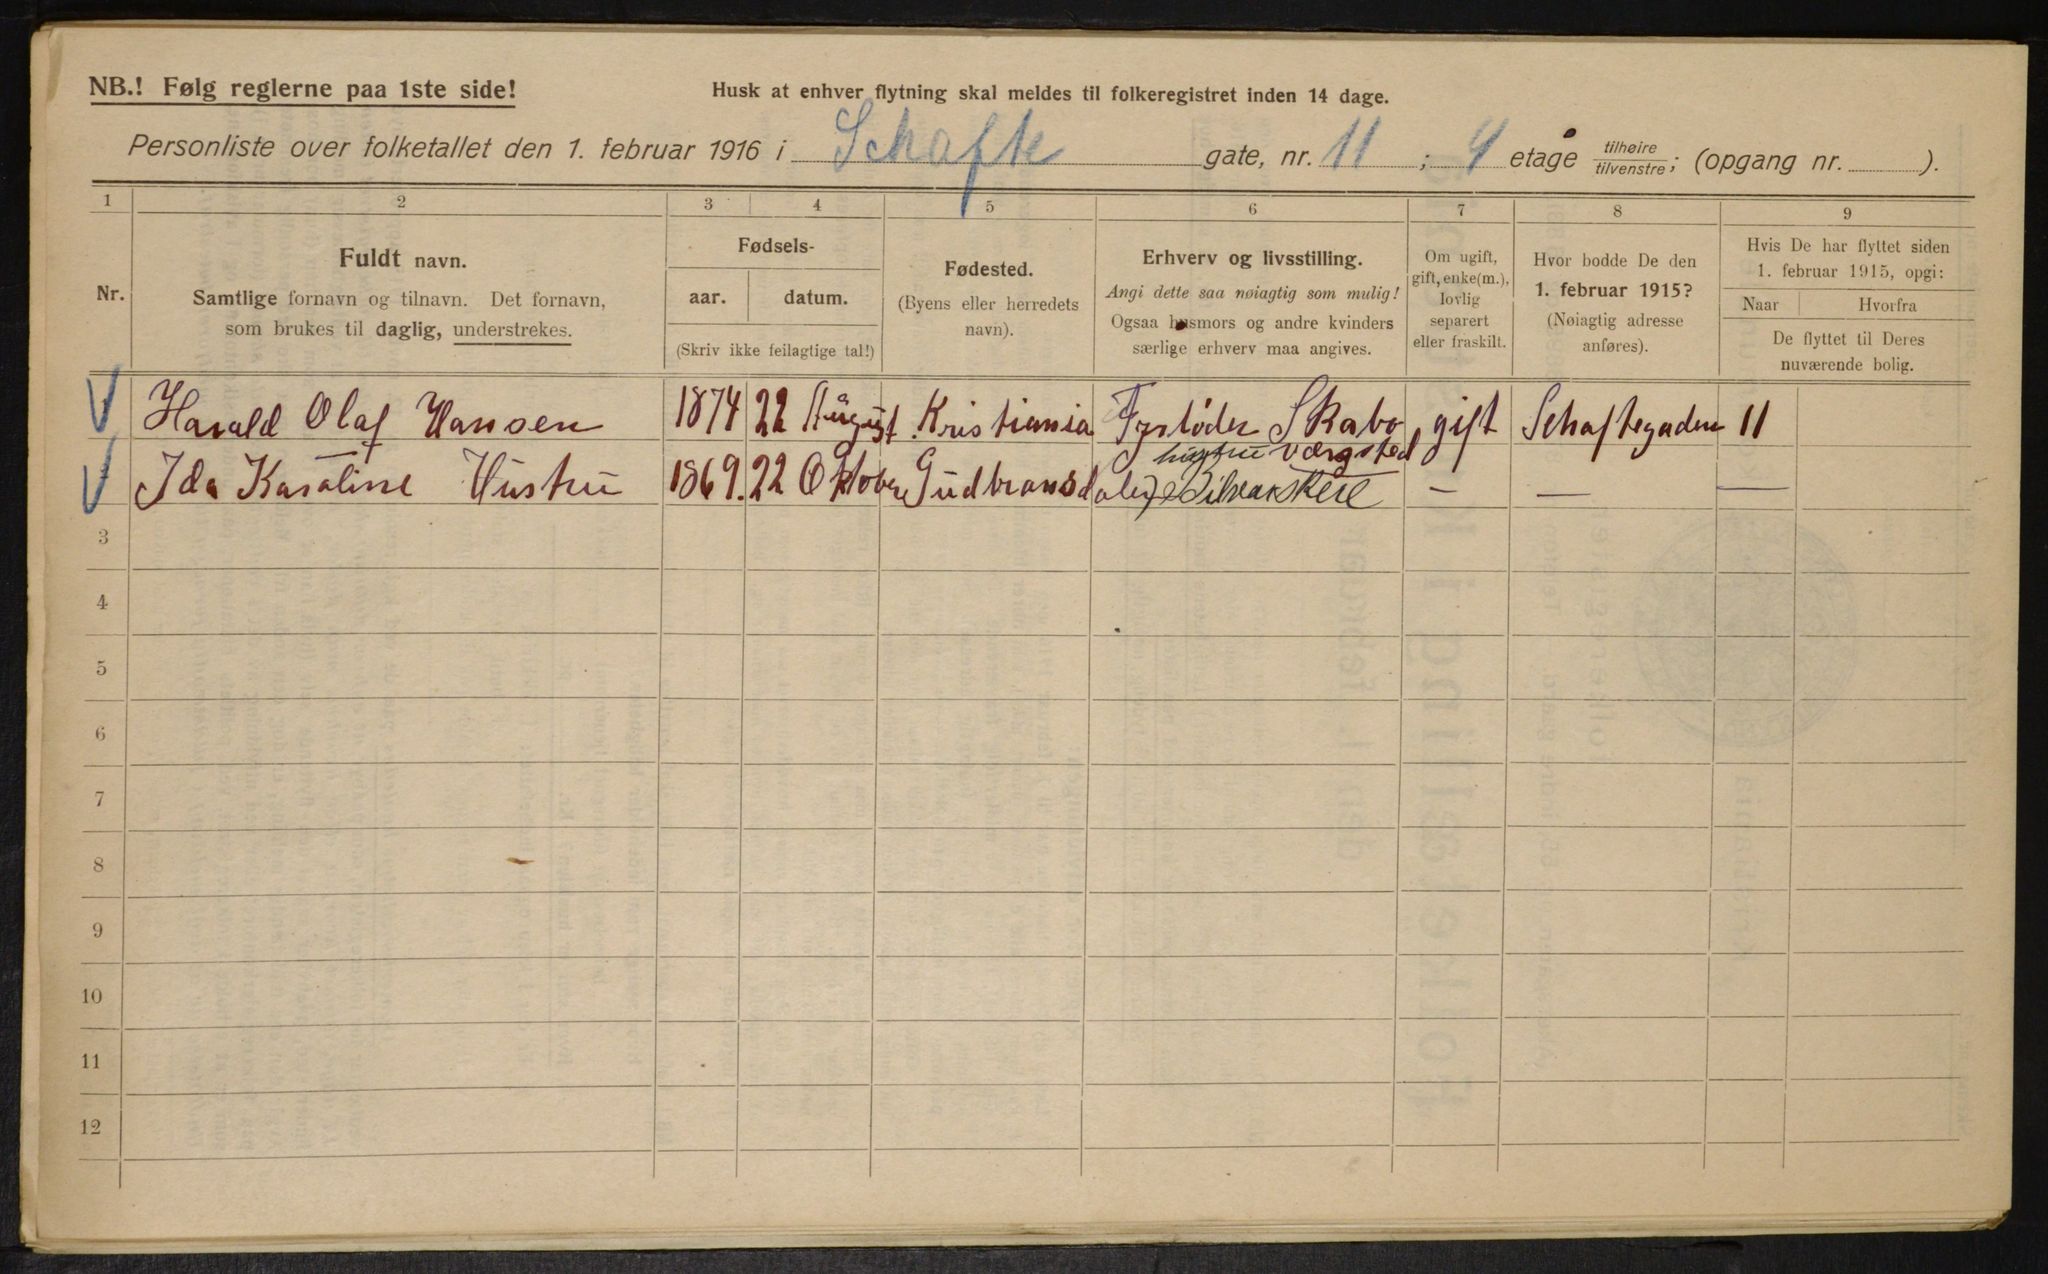 NB.! Følg reglerne paa 1ste side!
Husk at enhver flytning skal meldes til folkeregistret inden 14 dage.
Personliste over folketallet den 1. februar 1916 i Schafte gate, nr. 11 ; 4 etage tilhøire/tilvenstre; (opgang nr. ).
1 2 3 4 5 6 7 8 9
Nr.
Fuldt navn.
Samtlige fornavn og tilnavn. Det fornavn,
som brukes til daglig, understrekes.
Fødsels-
aar. datum.
(Skriv ikke feilagtige tal!)
Fødested.
(Byens eller herredets
navn).
Erhverv og livsstilling.
Angi dette saa nøiagtig som mulig!
Ogsaa husmors og andre kvinders
særlige erhverv maa angives.
Om ugift,
gift, enke(m.),
lovlig
separert
eller fraskilt.
Hvor bodde De den
1. februar 1915?
(Nøiagtig adresse
anføres).
Hvis De har flyttet siden
1. februar 1915, opgi:
Naar Hvorfra
De flyttet til Deres
nuværende bolig.
Harald Olaf Hansen 1874 22 August Kristiania Fyrbøder Skabo gift Schaftegaden 11
værgsted
hustru
Ida Karoline Hustru 1869. 22 Oktober Gudbransdalen — — —
3
4
5
6
7
8
9
10
11
12